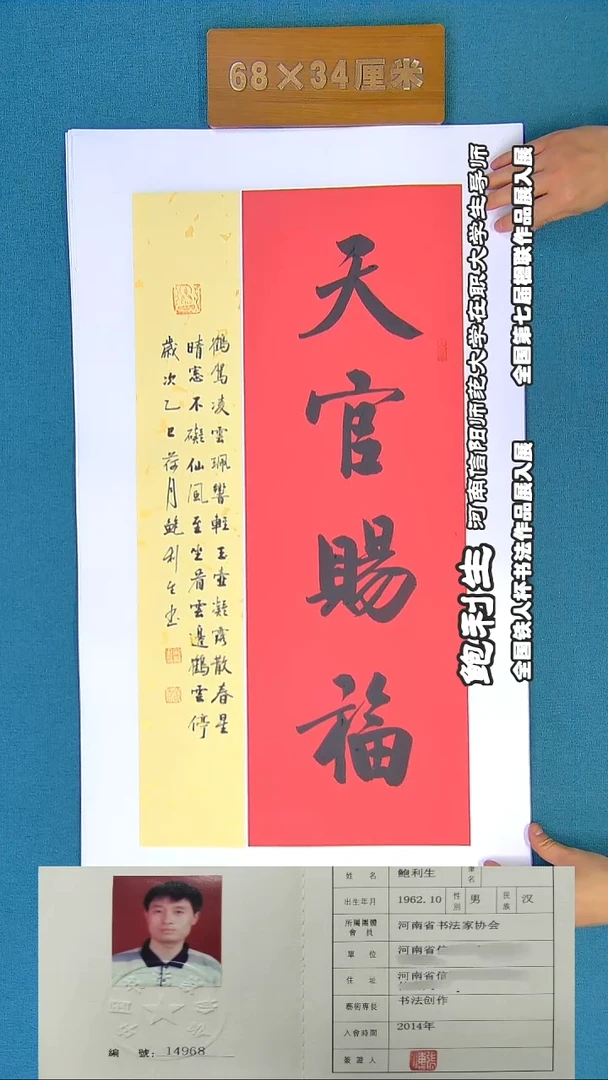 68×34厘米
天官賜福
鶴駕凌雲珮響輕玉壺凝露散春星
晴窓不礙仙風至坐看雲邊鶴雲停
歲次乙巳荷月鮑利生書
鲍利生 河南信阳师范大学在职大学生导师
全国铁人杯书法作品展入展 全国第七届楹联作品展入展
姓名 鲍利生 筆名
出生年月 1962.10 性别 男 民族 汉
所屬團體會員 河南省书法家协会
單位 河南省信
住址 河南省信
藝術專長 书法创作
入會時間 2014年
簽證人
編號: 14968